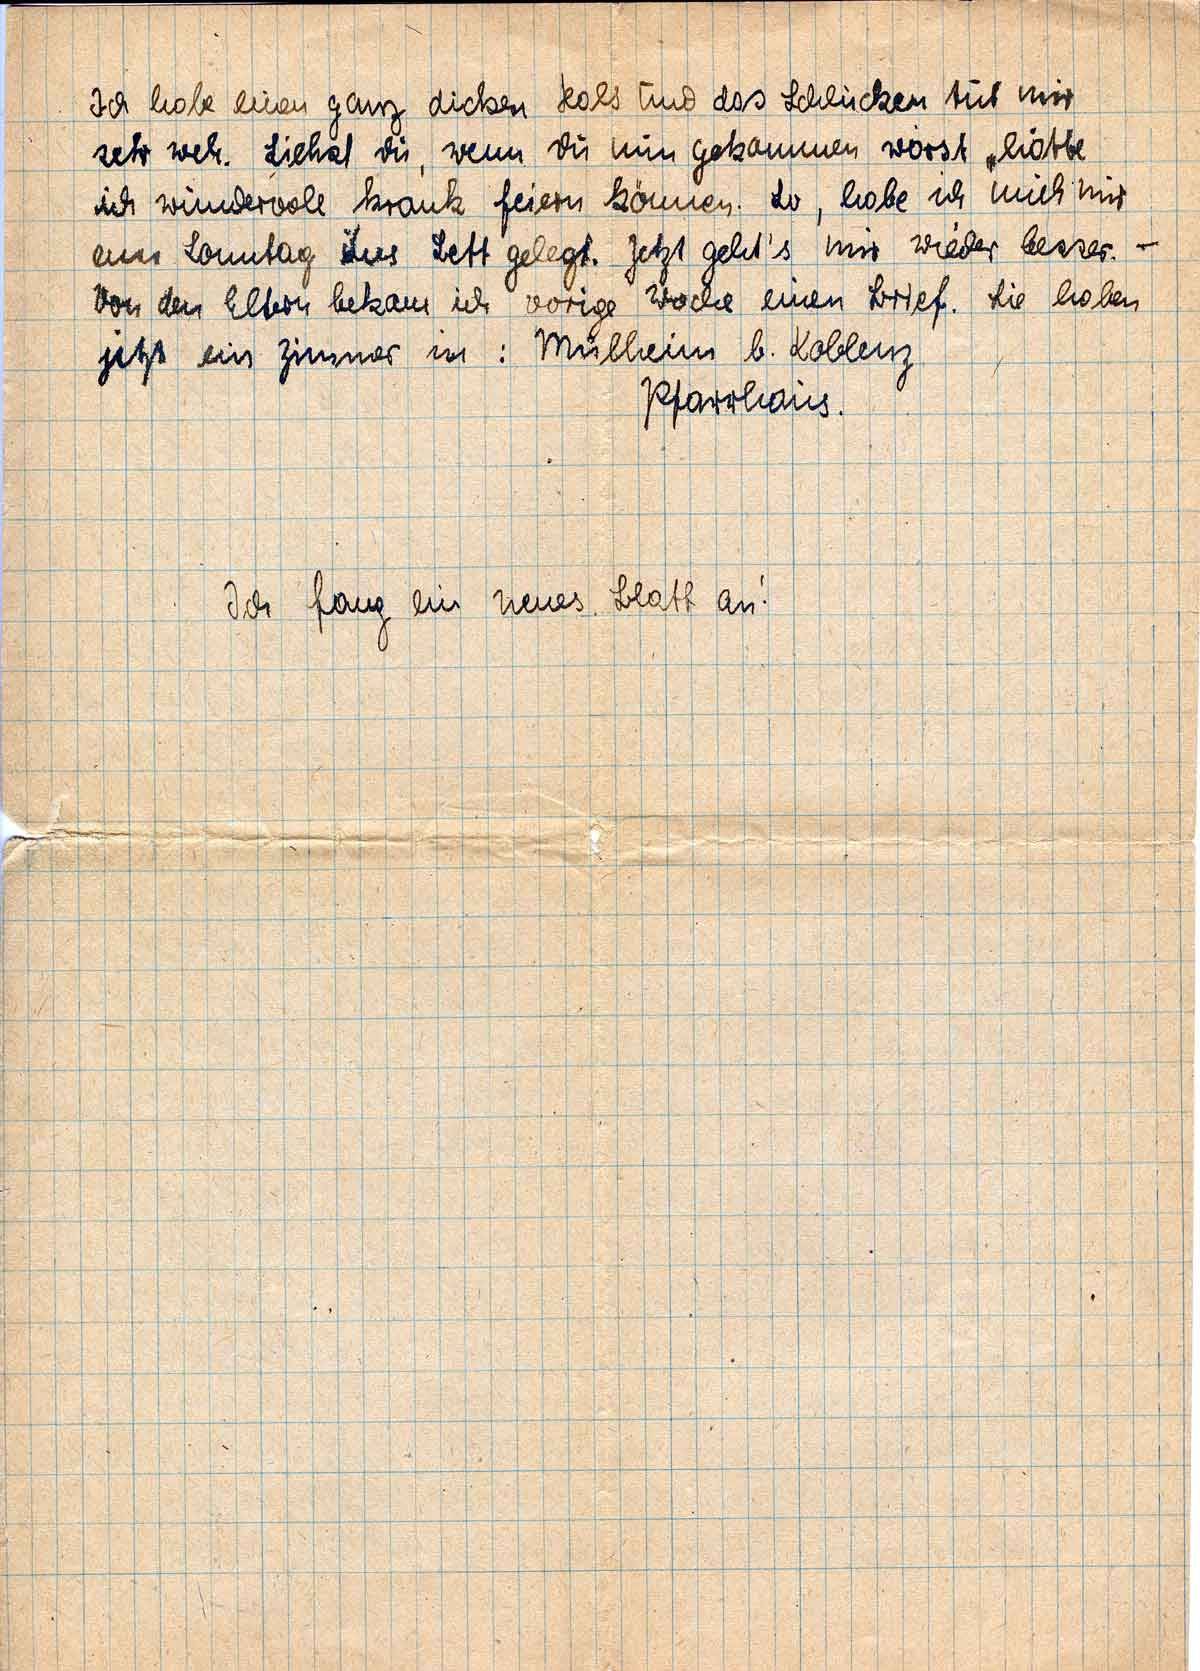 Ich habe einen ganz dicken Hals und das Schlucken tut mir
sehr weh. Siehst du, wenn du nun gekommen wärst, hätte
ich wundervoll krank feiern können. So, habe ich mich nur
am Sonntag ins Bett gelegt. Jetzt geht's mir wieder besser. –
Von den Eltern bekam ich vorige Woche einen Brief. Sie haben
jetzt ein Zimmer in : Mülheim b. Koblenz
Pfarrhaus.
Ich fang ein neues Blatt an!